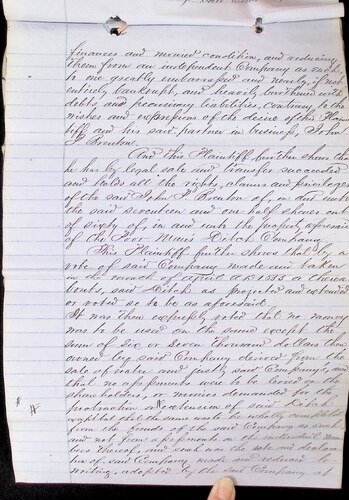 finances and moneed condition, and reducing
them from an independent Company as such
to one greatly embarrassed and nearly, if not
entirely bankrupt, and heavily burthened with
debts, and pecuniary liabilities, contrary to the
wishes and expression of the desire of this Plain
tiff and his said partner in business, John
And this Plaintiff further shows that
he has by legal sale and transfer succeeded
and holds all the rights, claims and privileges
of the said John of, in and unto
the said seventeen and one half shares out
of sixty of, in and unto the property aforesaid
of the Poor Man's Ditch Company
This Plaintiff further shows that by a
vote of said Company made and taken
in the month of A.D. 1855 or
bouts, said Ditch as projected and extended
or voted so to be as aforesaid.
It was then expressly voted that no money
was to be used on the same except the
sum of Six or Seven thousand dollars then
owned by said Company derived from the
sale of water and justly said Company, and
that no assessments were to be levied on the
share holders, or monies demanded for the
prosecution or extension of said Ditch
might but that the same work be wholly completed
from the funds of the said Company as such
and not from assessments on the individual mem
bers thereof, and such was the vote and declara
tion of said Company made and reduced to
writing, adopted by the said Company at